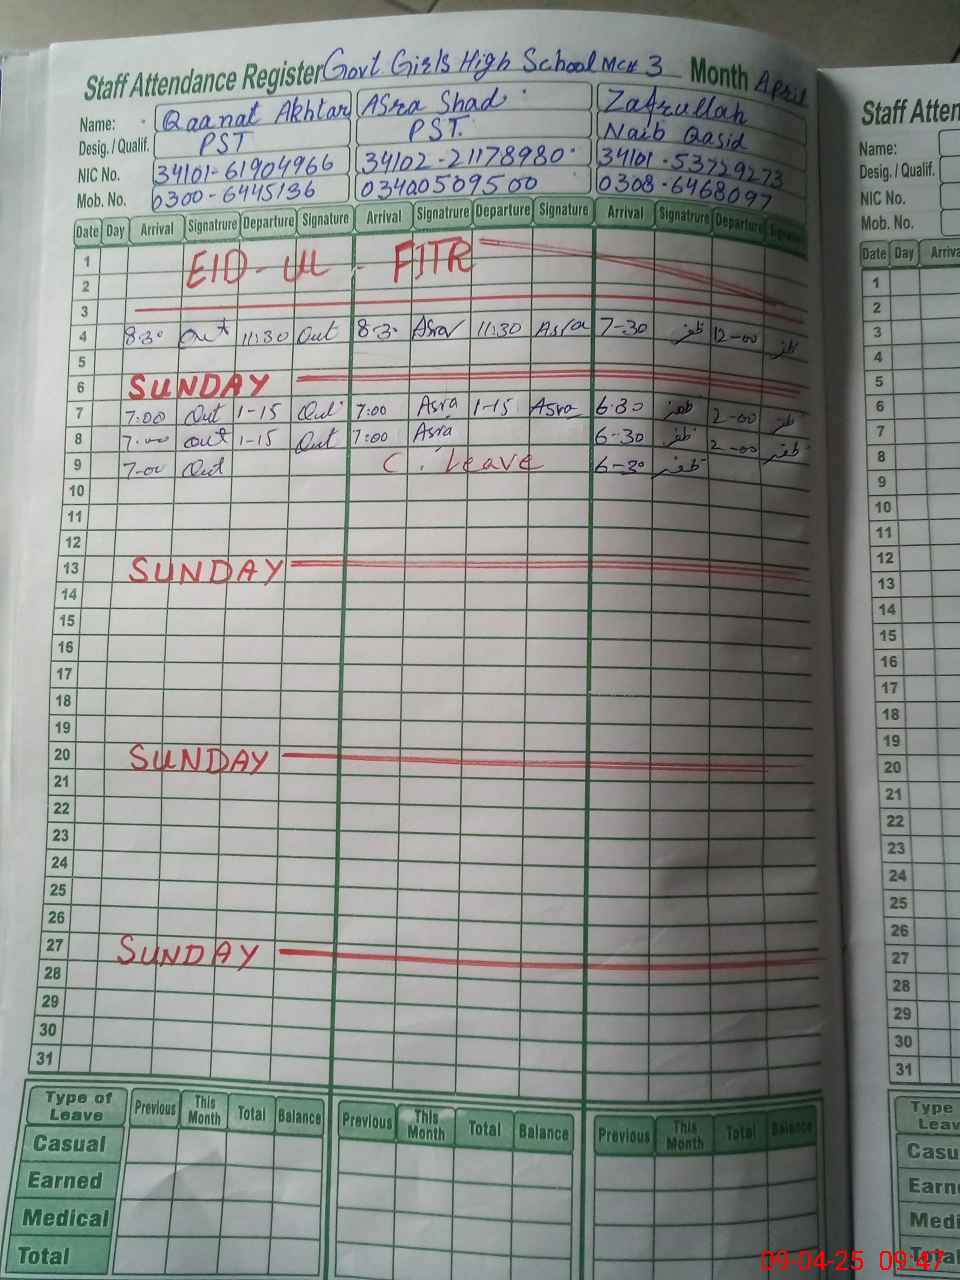 Staff Attendance Register Govt. Girls High School MC# 3 Month April
Name: Qaanat Akhtar Asra Shad Zafrullah
Desig. / Qualif. PST PST. Naib Qasid
NIC No. 34101-61904966 34102-21178980 34101-53729273
Mob. No. 0300-6445136 03400509500 0308-6468097
Date Day Arrival Signatrure Departure Signature Arrival Signatrure Departure Signature Arrival Signatrure Departure Signature
1
EID-UL-FITR
2
3
4 8:30 11:30 8:30 Asra 11:30 Asra 7-30 12-00
5
6 SUNDAY
7 7:00 1-15 7:00 Asra 1-15 Asra 6-30 2-00
8 7:00 1-15 7:00 Asra 6-30 2-00
9 7-00 C. Leave 6-30
10
11
12
13 SUNDAY
14
15
16
17
18
19
20 SUNDAY
21
22
23
24
25
26
27 SUNDAY
28
29
30
31
Type of Leave Previous This Month Total Balance Previous This Month Total Balance Previous This Month Total Balance
Casual
Earned
Medical
Total
Staff Atten
Name:
Desig. / Qualif.
NIC No.
Mob. No.
Date Day Arriva
1
2
3
4
5
6
7
8
9
10
11
12
13
14
15
16
17
18
19
20
21
22
23
24
25
26
27
28
29
30
31
Type
Leav
Casu
Earn
Medi
Total
09-04-25 09:47